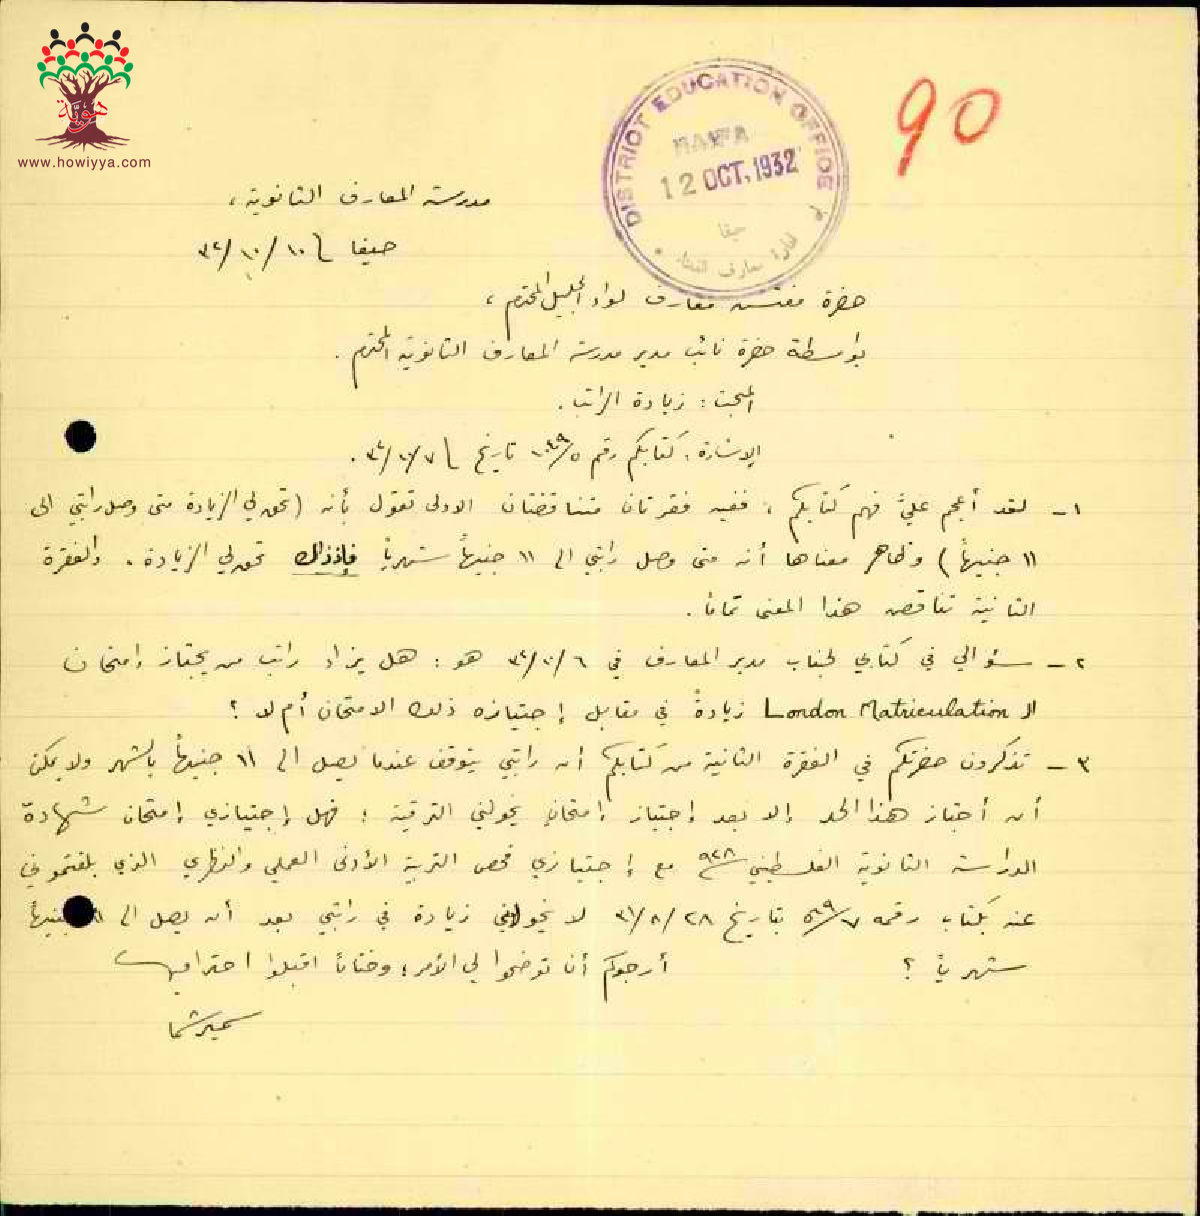 هويّة
www.howiyya.com
90
DISTRICT EDUCATION OFFICE
HAIFA
12 OCT. 1932
حيفا
مدرسة المعارف الثانوية ،
حيفا ١٠/١٠/٣٢
حضرة مفتش معارف لواء الجليل المحترم ،
بواسطة حضرة نائب مدير مدرسة المعارف الثانوية المحترم .
المبحث : زيادة الراتب .
الإشارة : كتابكم رقم تاريخ
١ - لقد أعجم عليّ فهم كتابكم ، ففيه فقرتان متناقضتان الاولى تقول بأنه (تحق لي الزيادة متى وصل راتبي الى
١١ جنيهاً ) وظاهر معناها أنه متى وصل راتبي الى ١١ جنيهاً شهرياً فإذذاك تحق لي الزيادة . والفقرة
الثانية تناقض هذا المعنى تماماً .
٢ - سؤالي في كتابي لجناب مدير المعارف في ٦/١٠/٣٢ هو : هل يزاد راتب من يجتاز إمتحان
الـ London Matriculation زيادةً في مقابل إجتيازه ذلك الامتحان أم لا ؟
٣ - تذكرون حضرتكم في الفقرة الثانية من كتابكم أن راتبي يتوقف عندما يصل الى ١١ جنيهاً بالشهر ولا يمكن
أن أجتاز هذا الحد إلا بعد إجتياز إمتحان يخولني الترقية ؛ فهل إجتيازي إمتحان شهادة
الدراسة الثانوية الفلسطيني ٩٢٨ مع إجتيازي فحص التربية الأدنى العملي والنظري الذي بلغتموني
عنه بكتاب رقمه بتاريخ ٢٨/٨/٣١ لا يخولني زيادة في راتبي بعد أن يصل الى ١١ جنيهاً
شهرياً ؟ أرجوكم أن توضحوا لي الأمر ؛ وختاماً اقبلوا احترامي
سمير شما